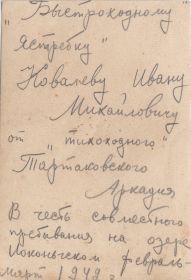 "Быстроходному
Ястребку"
Ковалеву Ивану
Михайловичу
от "тихоходного"
Тартаковского
Аркадия
В честь совместного
пребывания на озере
февраль-
март 1949 г